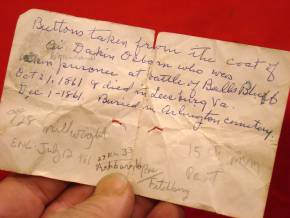 Buttons taken from the coat of
A. Daskin Osborn who was
taken prisoner at battle of Balls Bluff
Oct 21, 1861 & died in Leesburg Va.
Dec 1-1861 Buried in Arlington cemetery.
age 28 millwright
15th MVM
ENL. July 12 '61
Ashburnham
or
Fitchburg